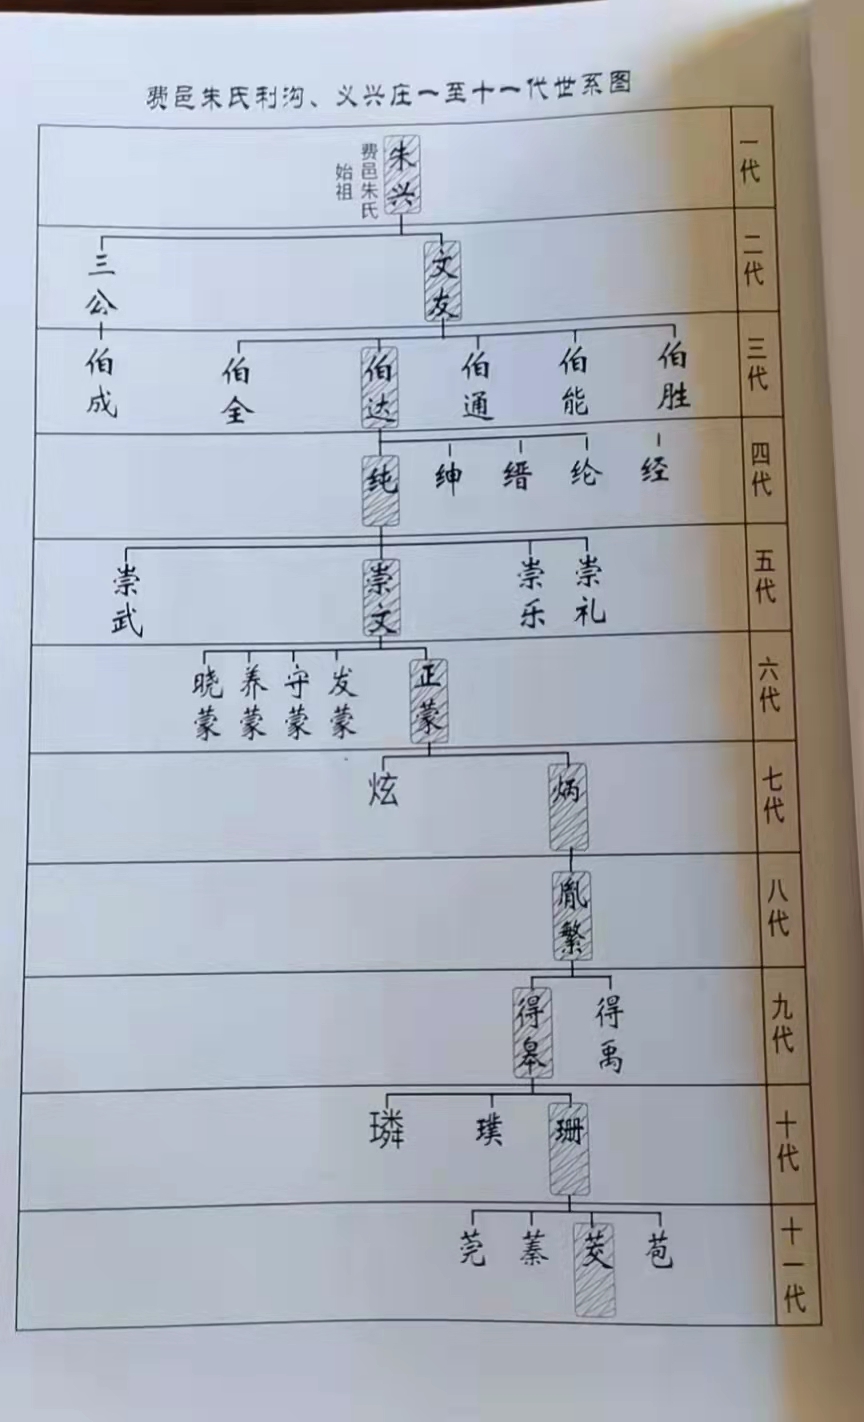 费邑朱氏利沟、义兴庄一至十一代世系图
一代
朱兴
费邑朱氏
始祖
二代
三公
文友
三代
伯成
伯全
伯达
伯通
伯能
伯胜
四代
纯
绅
缙
纶
经
五代
崇武
崇文
崇乐
崇礼
六代
晓蒙
养蒙
守蒙
发蒙
正蒙
七代
炫
炳
八代
胤繁
九代
得皋
得禹
十代
璘
璞
珊
十一代
莞
蓁
茭
苞